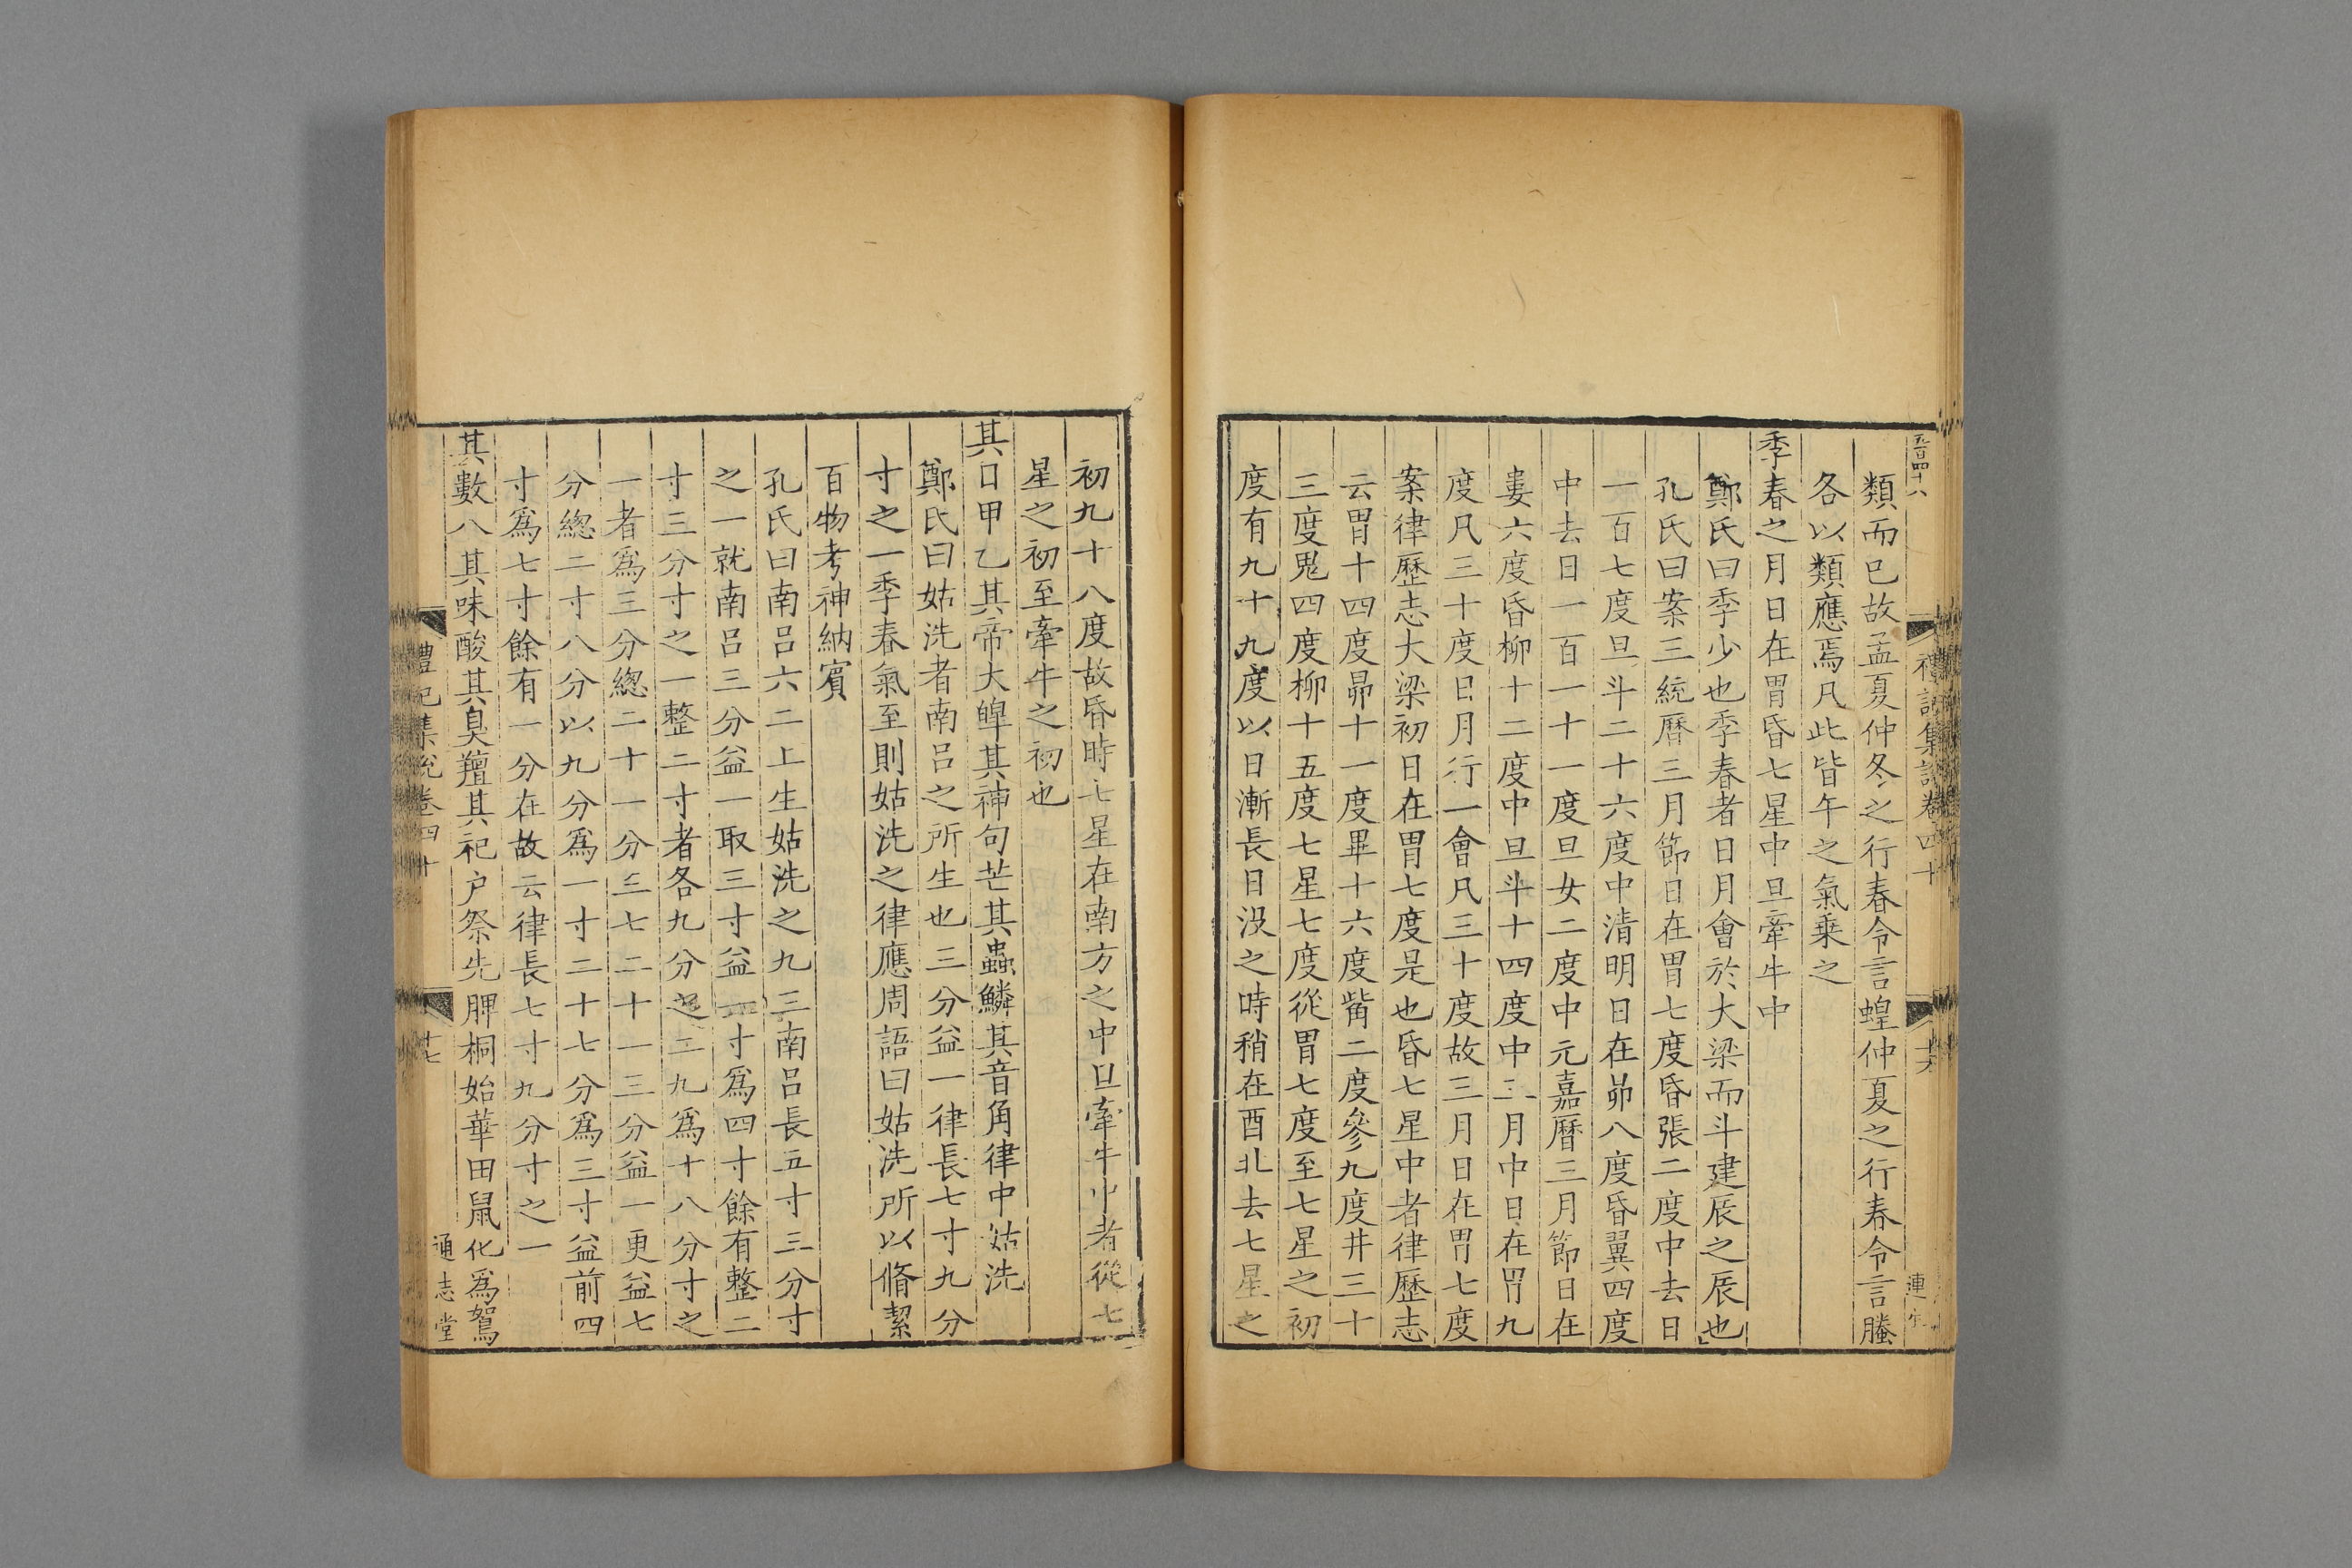 五百四十八
禮記集說卷四十
十六
類而已故孟夏仲冬之行春令言蝗仲夏之行春令言螣
各以類應焉凡此皆午之氣乗之
季春之月日在胃昏七星中旦牽牛中
鄭氏曰季少也季春者日月會於大梁而斗建辰之辰也
孔氏曰案三統曆三月節日在胃七度昏張二度中去日
一百七度旦斗二十六度中清明日在昴八度昏翼四度
中去日一百一十一度旦女二度中元嘉曆三月節日在
婁六度昏柳十二度中旦斗十四度中三月中日在胃九
度凡三十度日月行一會凡三十度故三月日在胃七度
案律歷志大梁初日在胃七度是也昏七星中者律歷志
云胃十四度昴十一度畢十六度觜二度參九度井三十
三度鬼四度柳十五度七星七度從胃七度至七星之初
度有九十九度以日漸長日沒之時稍在酉北去七星之
初九十八度故昏時七星在南方之中旦牽牛中者從七
星之初至牽牛之初也
其日甲乙其帝大皞其神句芒其蟲鱗其音角律中姑洗
鄭氏曰姑洗者南呂之所生也三分益一律長七寸九分
寸之一季春氣至則姑洗之律應周語曰姑洗所以脩絜
百物考神納賓
孔氏曰南呂六二上生姑洗之九三南呂長五寸三分寸
之一就南呂三分益一取三寸益一寸爲四寸餘有整二
寸三分寸之一整二寸者各九分之二九爲十八分寸之
一者爲三分總二十一分三七二十一三分益一更益七
分總二寸八分以九分爲一寸二十七分爲三寸益前四
寸爲七寸餘有一分在故云律長七寸九分寸之一
其數八其味酸其臭羶其祀户祭先脾桐始華田鼠化爲鴽
禮記集說卷四十
十七
通志堂